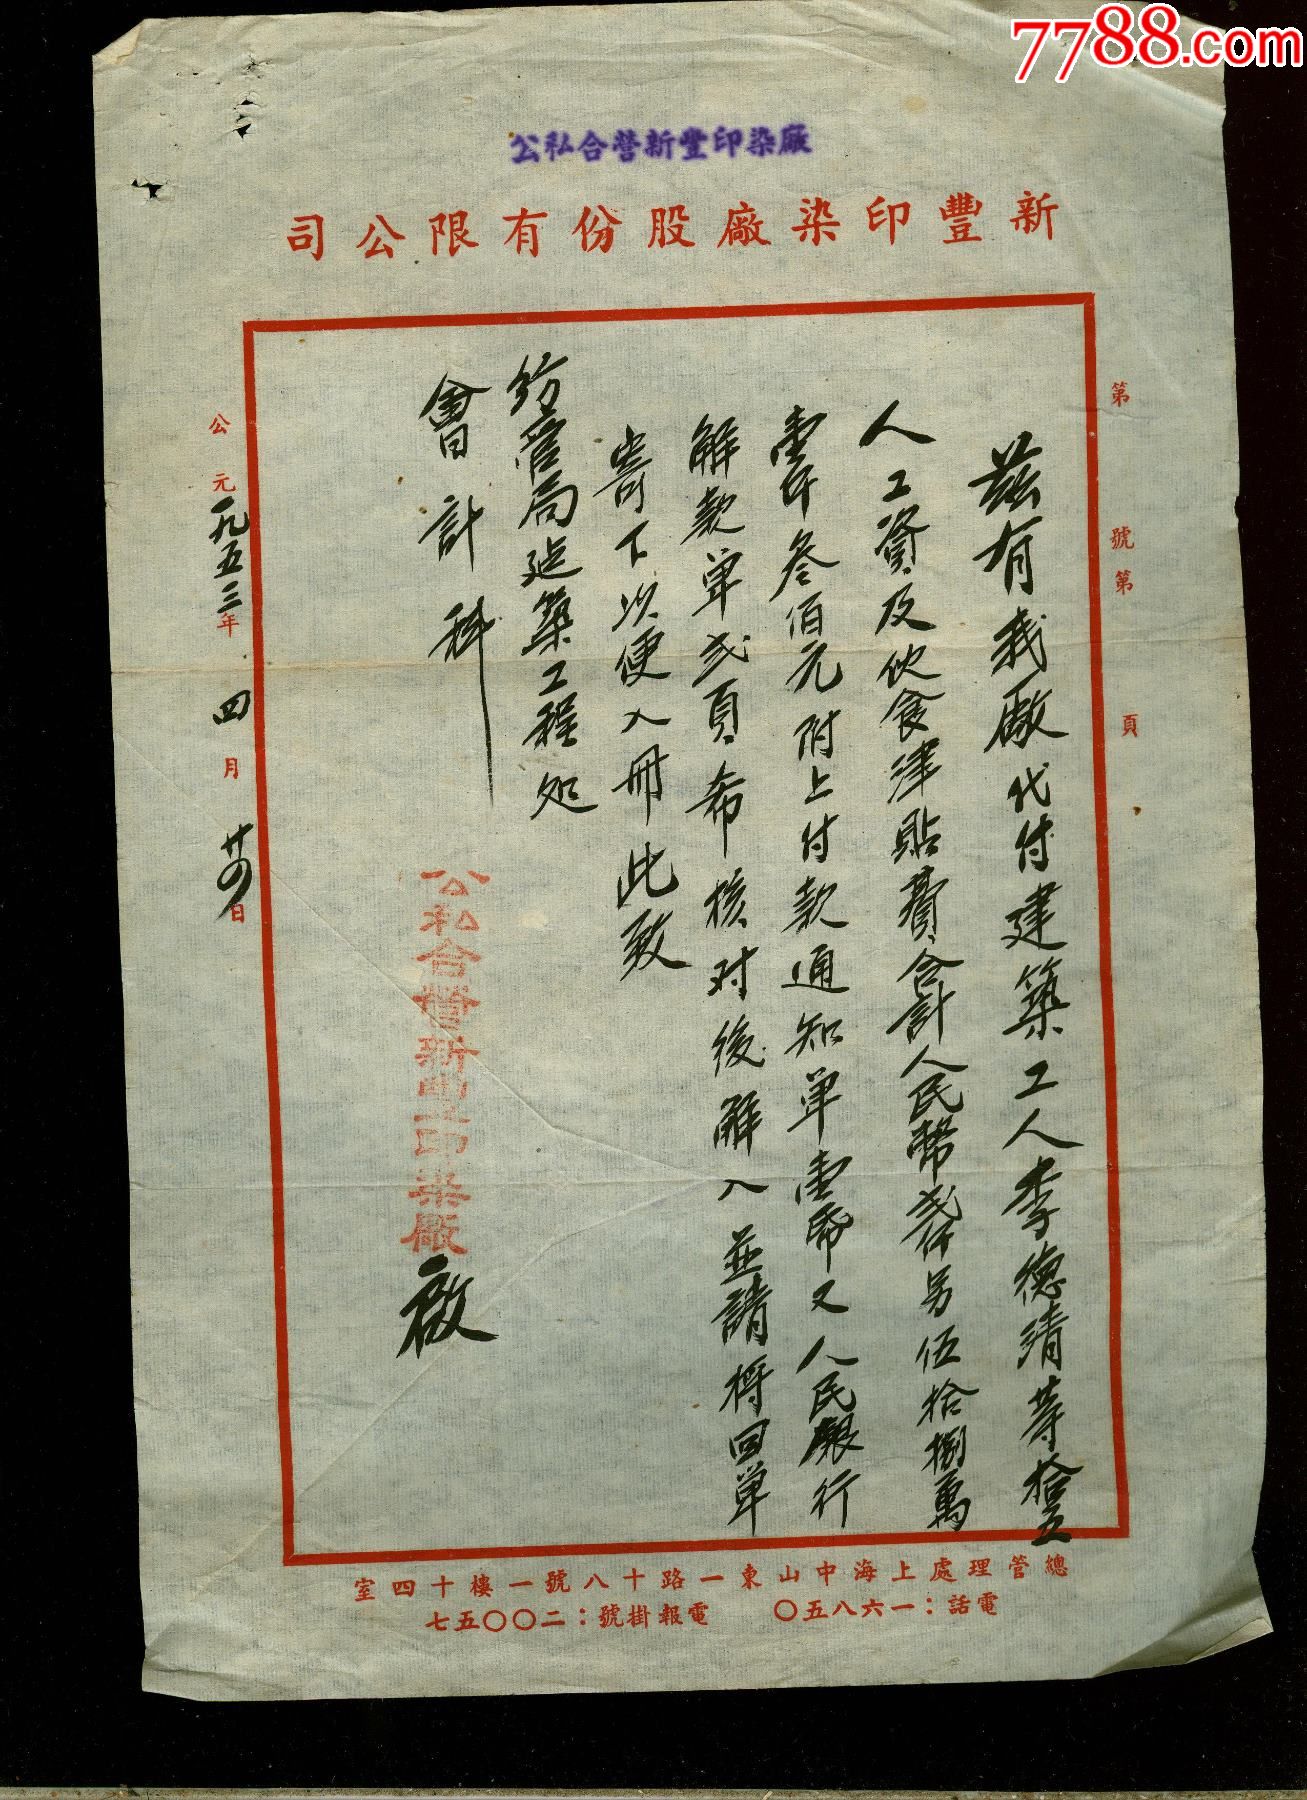 7788.com
公私合營新豐印染廠
新豐印染廠股份有限公司
第 號第 頁
茲有我廠代付建築工人李德清等拾五
人工資及伙食津貼費合計人民幣弍仟另伍拾捌萬
壹仟叁佰元附上付款通知單壹帋又人民銀行
解款單弍頁希核对後解入並請將回單
寄下以便入冊此致
紡管局建築工程处
會計科
公私合營新豐印染廠 啟
公元一九五三年 四月 廿四日
總管理處上海中山東一路十八號一樓十四室
電話：一六八五〇 電報掛號：二〇〇五七